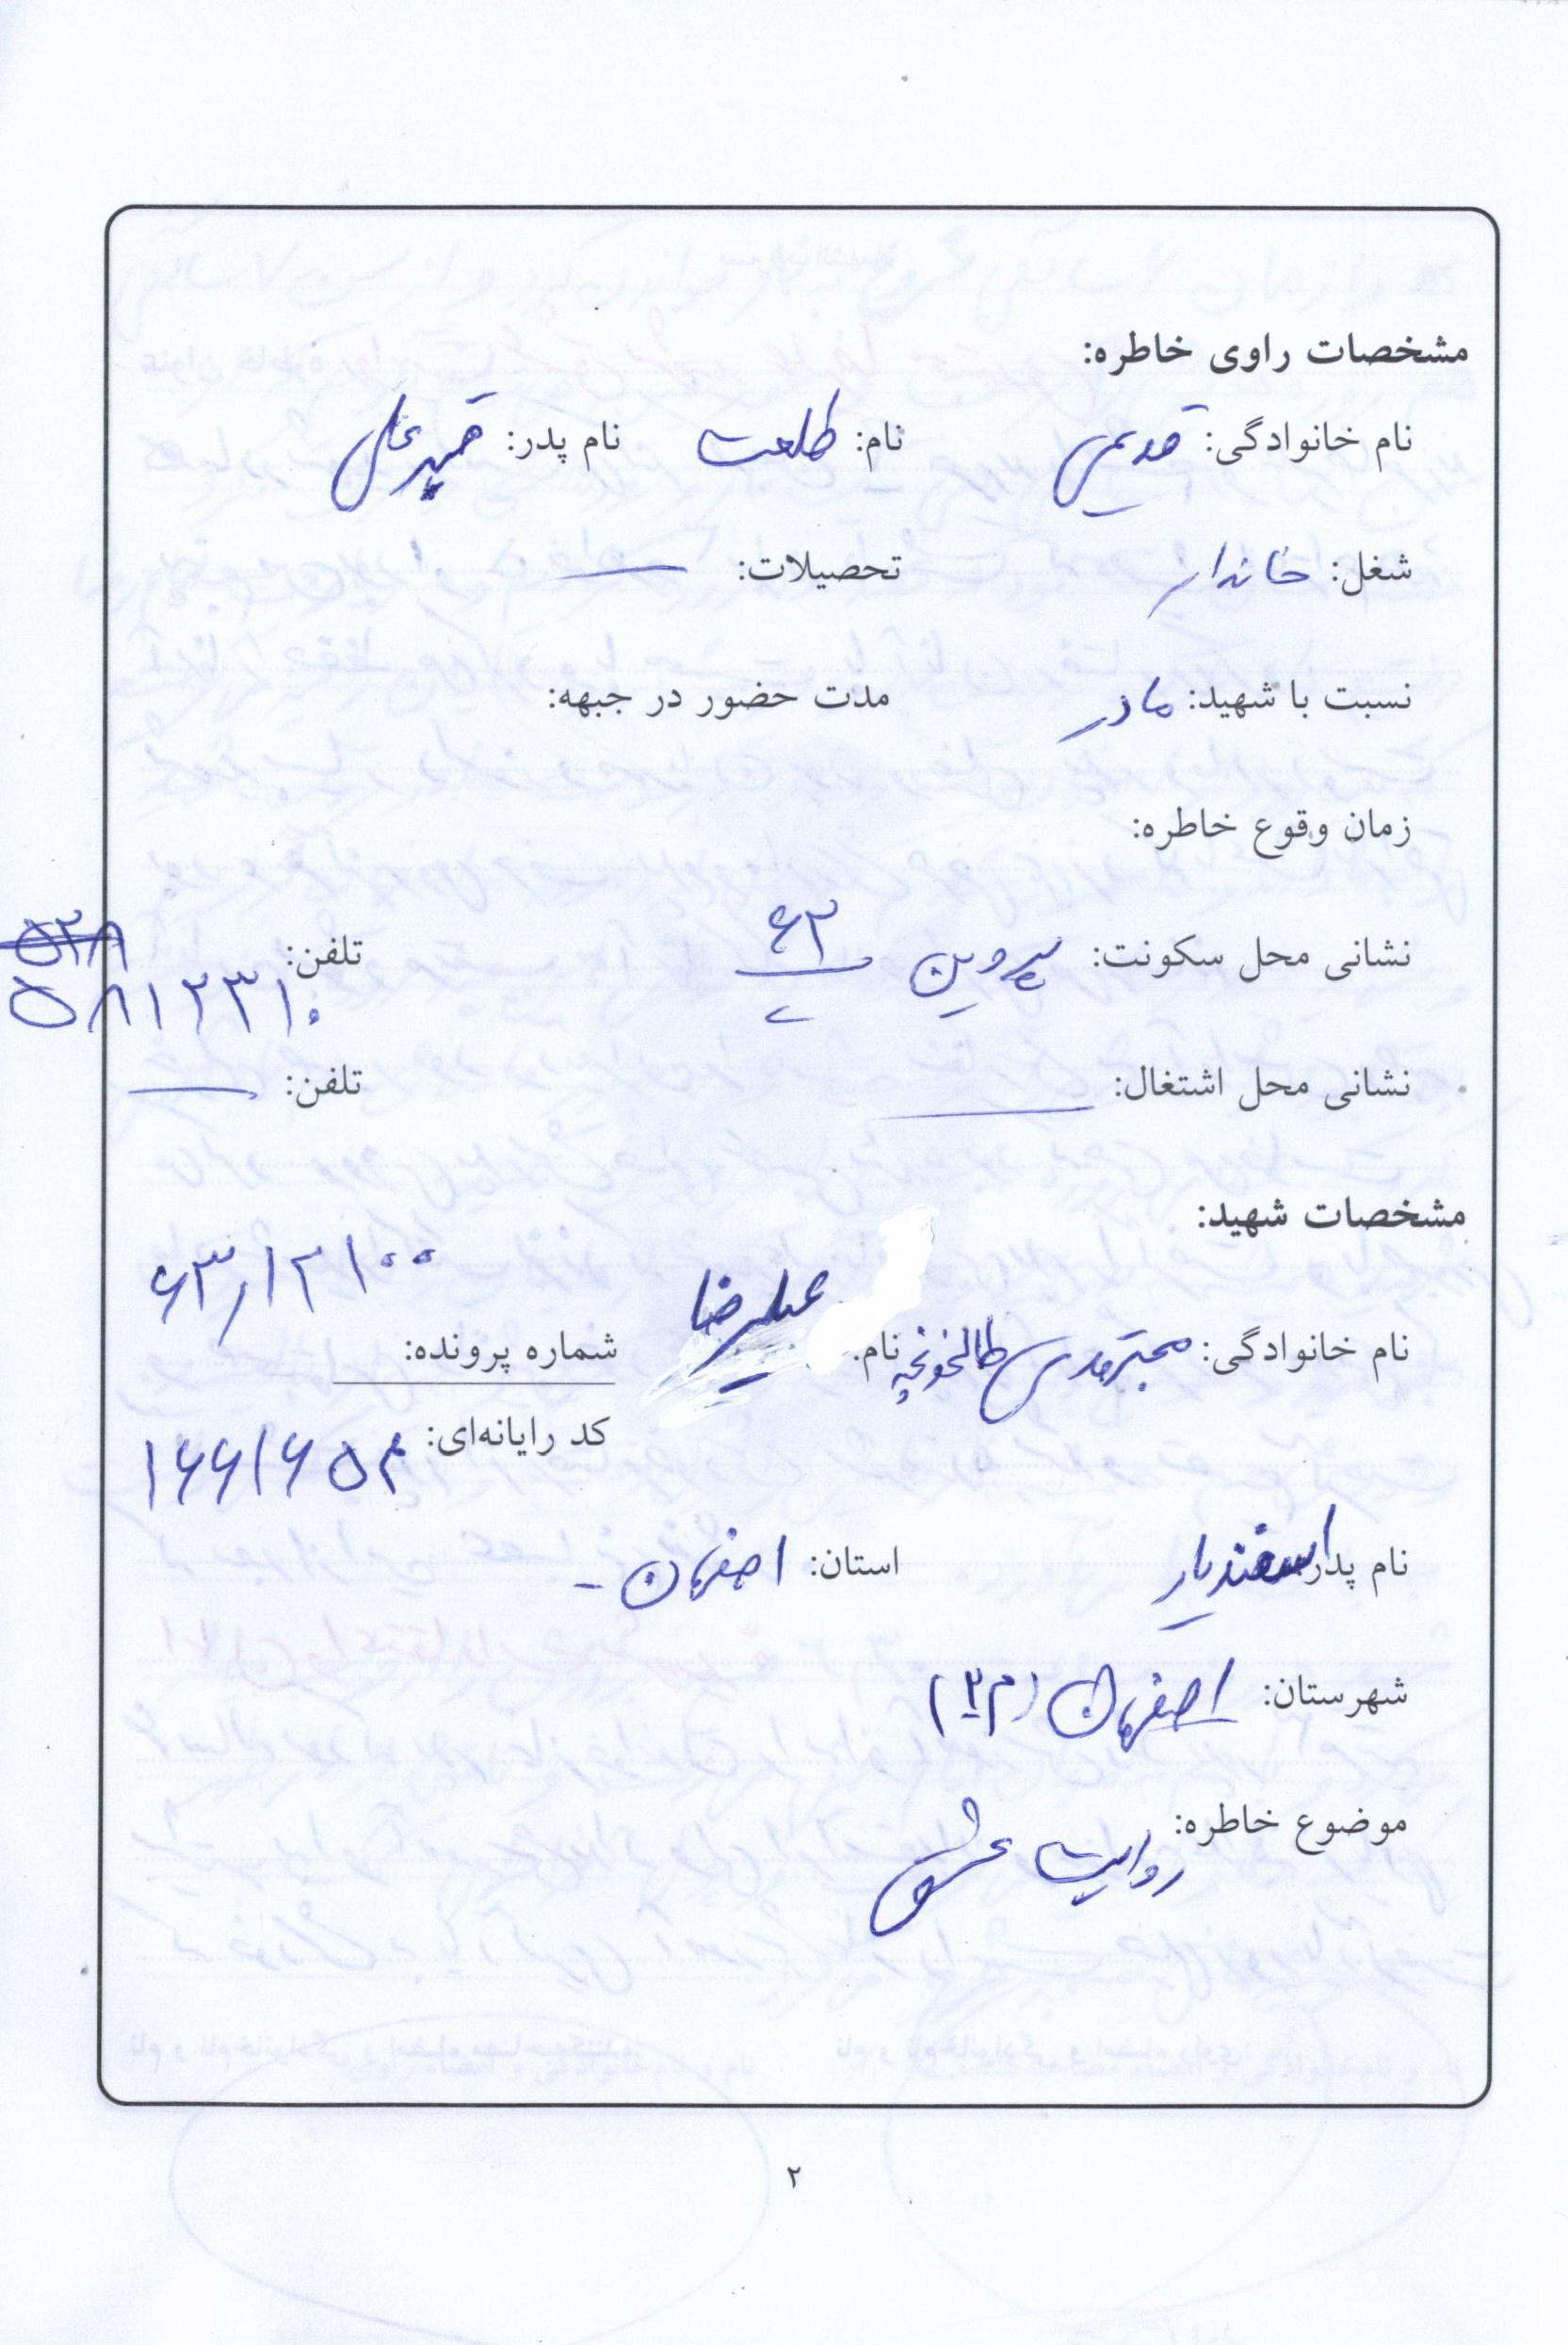 مشخصات راوی خاطره:
نام خانوادگی: قدیمی نام: طلعت نام پدر: قمبرعلی
شغل: خاندار تحصیلات: —
نسبت با شهید: مادر مدت حضور در جبهه:
زمان وقوع خاطره:
نشانی محل سکونت: پروین ۶۳ تلفن: ۵۲۸
۵۸۱۲۳۱۰
نشانی محل اشتغال: — تلفن: —
مشخصات شهید:
۶۳/۱۲۱۰۰
نام خانوادگی: طالخونچه نام: علیرضا شماره پرونده:
کد رایانه‌ای: ۱۶۶۱۶۵۳
نام پدر: اسفندیار استان: اصفهان -
شهرستان: اصفهان (م۲)
موضوع خاطره: روایت عشق
۲